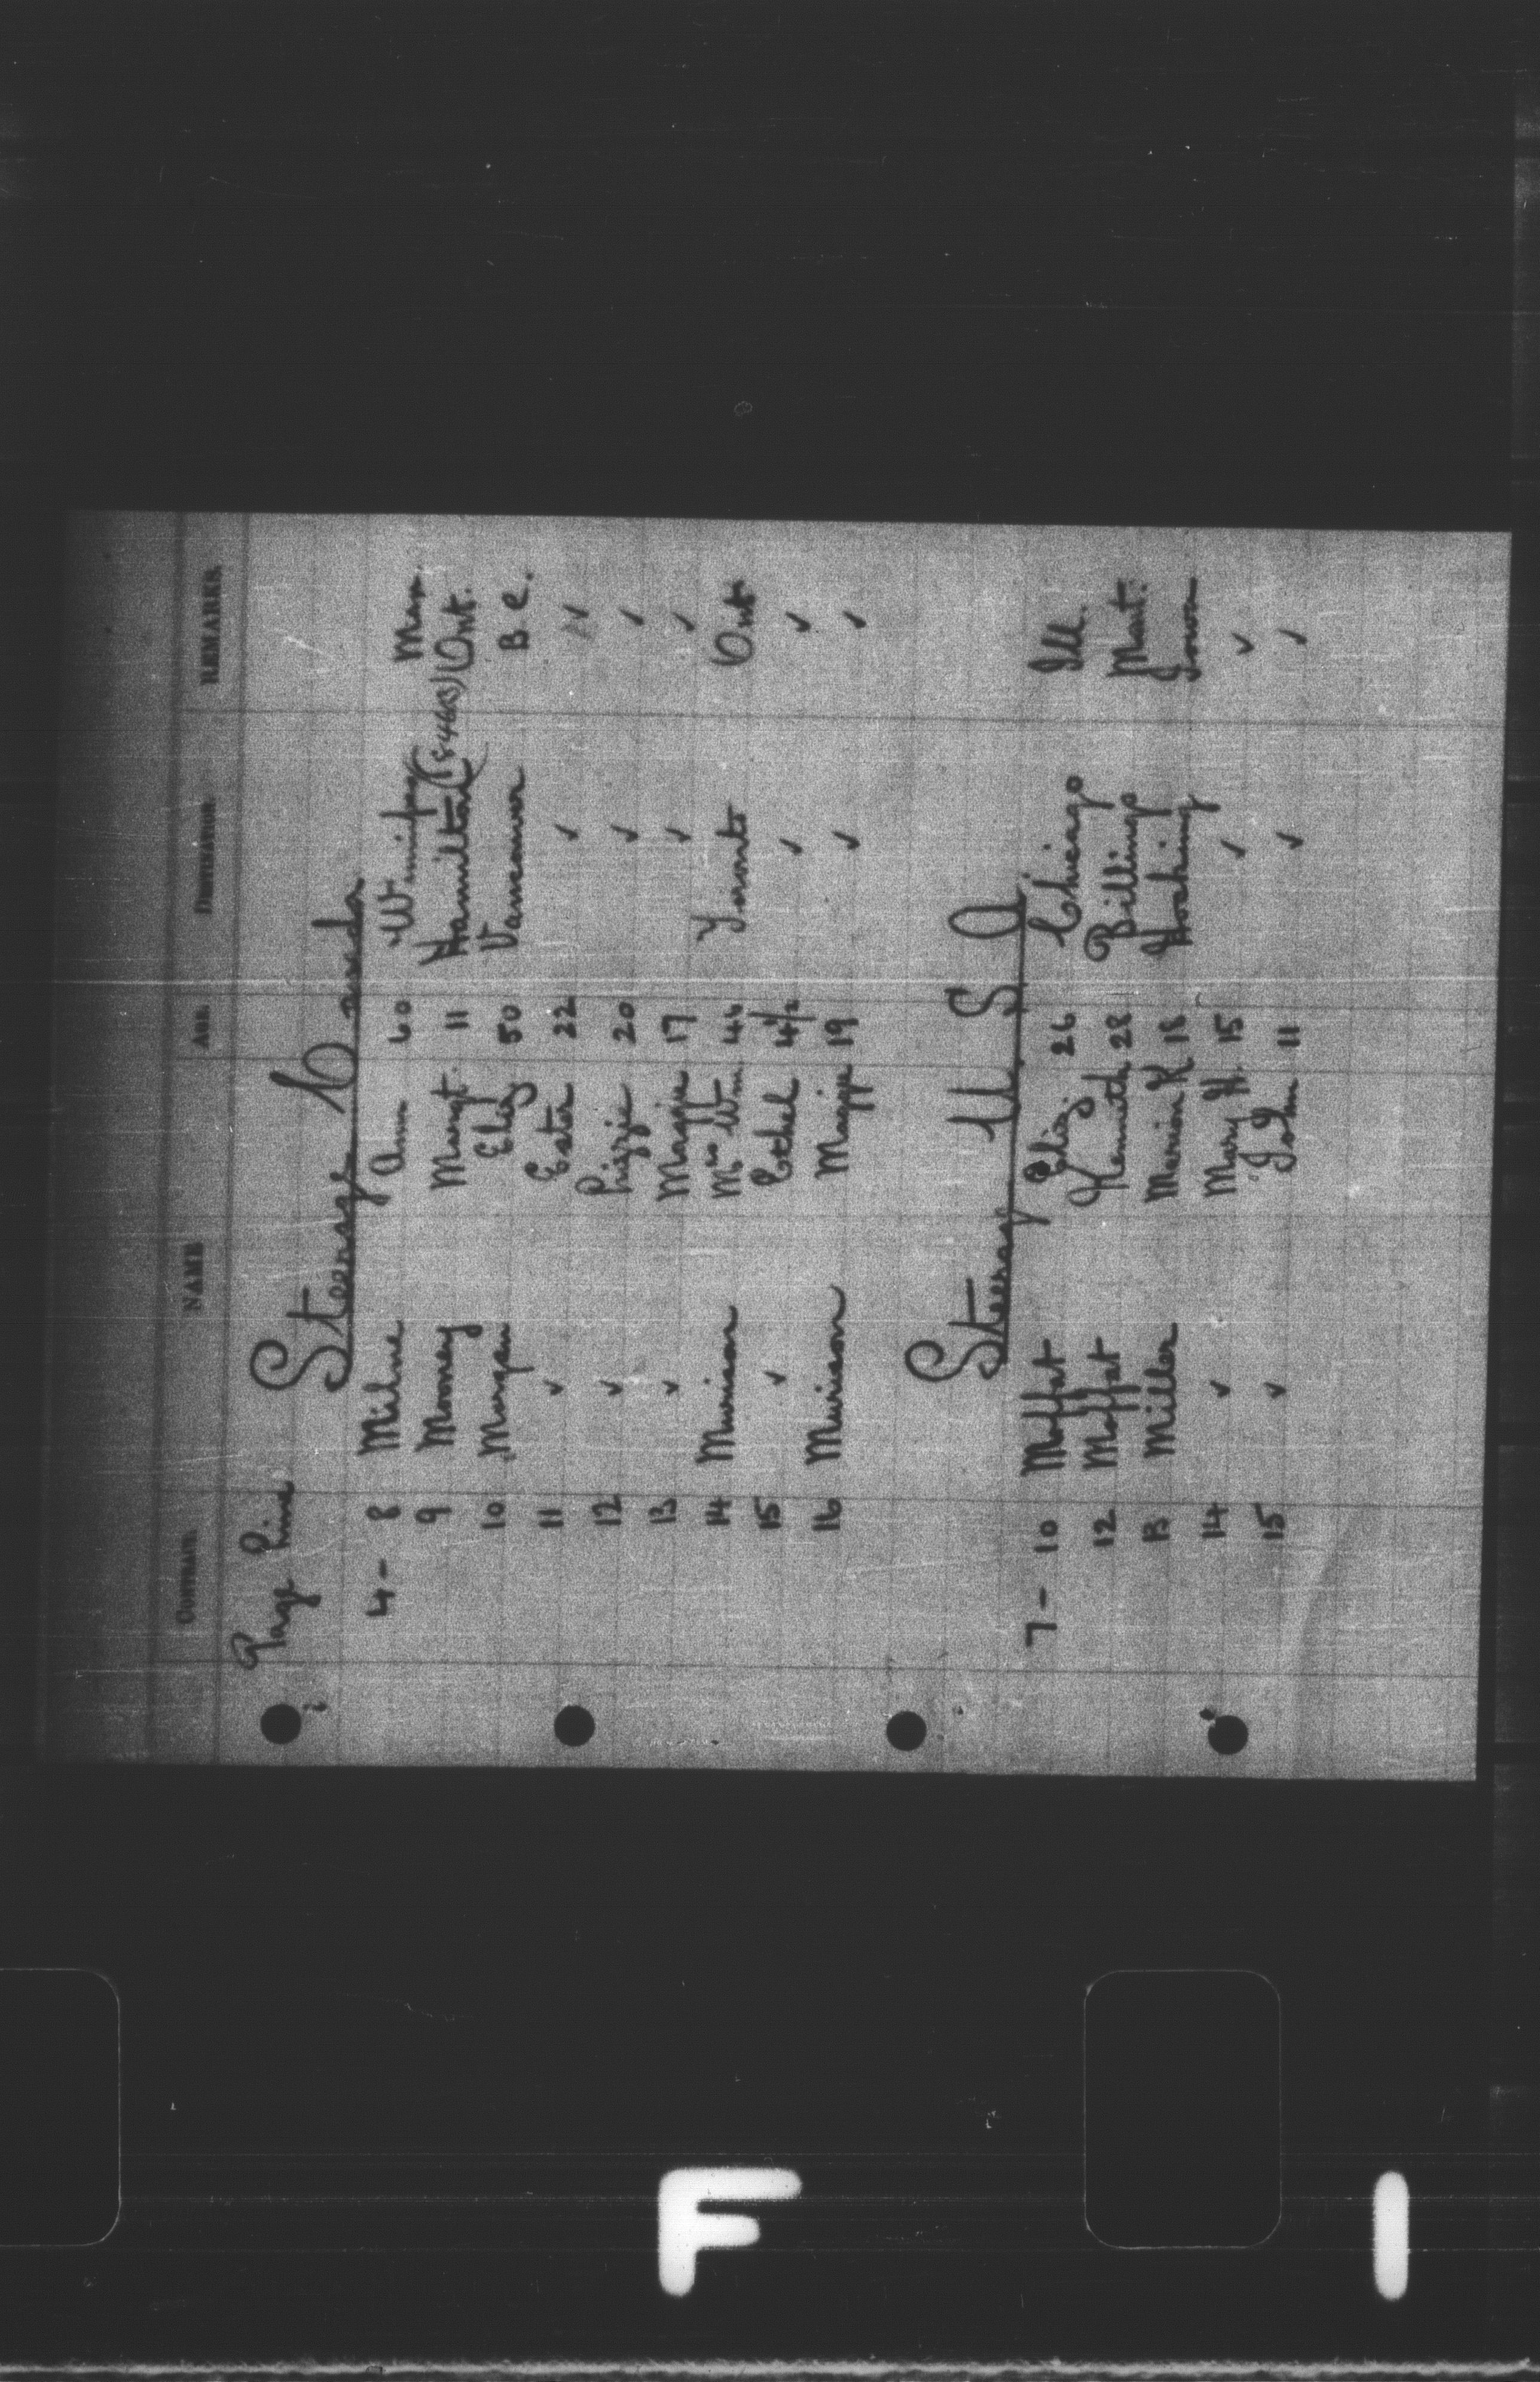 CONTRACT. NAME AGE. DESTINATION. REMARKS.
Page Line
Steerage Canada
4 - 8 Milne Ann 60 Winnipeg Man.
9 Mooney Margt. 11 Hamilton Ont.
10 Morgan Eliz 50 Vancouver B C.
11 ✓ Ester 22 ✓ ✓
12 ✓ Lizzie 20 ✓ ✓
13 ✓ Maggie 17 ✓ ✓
14 Murison Mrs Wm. 46 Toronto Ont
15 ✓ Ethel 4½ ✓ ✓
16 Murison Maggie 19 ✓ ✓
Steerage U. S. A.
7 - 10 Moffat Eliz. 26 Chicago Ill.
12 Moffat Kenneth 28 Billings Mont.
13 Miller Marion K 18 Hocking Iowa
14 ✓ Mary H. 15 ✓ ✓
15 ✓ John 11 ✓ ✓
F I